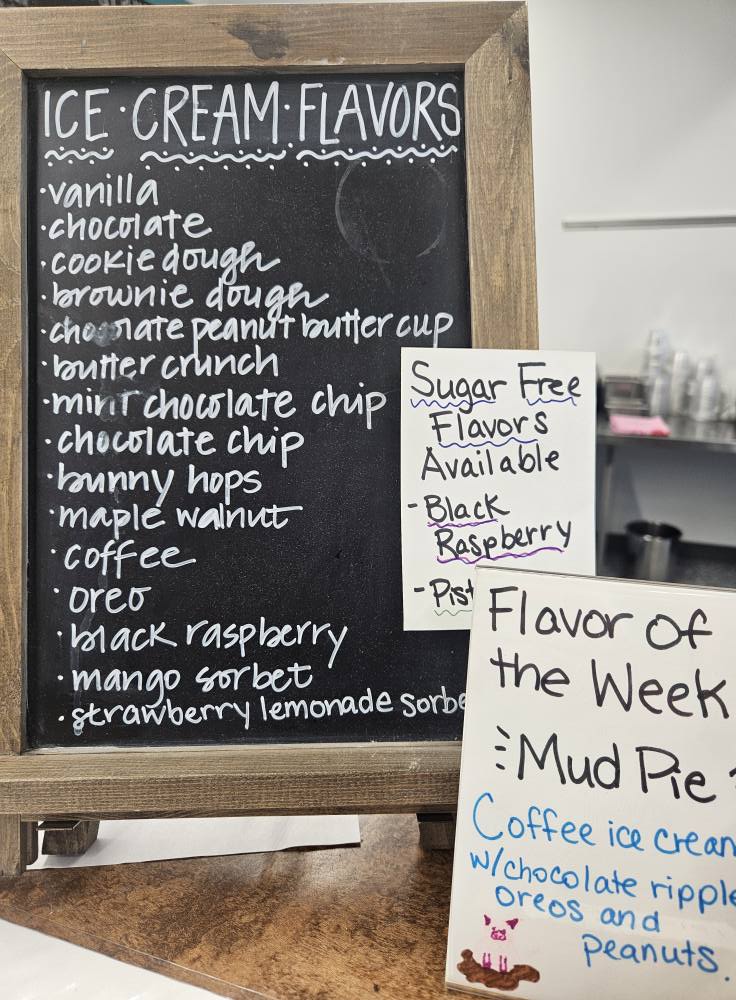 ICE · CREAM · FLAVORS
· vanilla
· chocolate
· cookie dough
· brownie dough
· chocolate peanut butter cup
· butter crunch
· mint chocolate chip
· chocolate chip
· bunny hops
· maple walnut
· coffee
· oreo
· black raspberry
· mango sorbet
· strawberry lemonade sorbe
Sugar Free
Flavors
Available
- Black
Raspberry
- Pist
Flavor of
the Week
Mud Pie
Coffee ice cream
w/chocolate ripple
oreos and
peanuts.